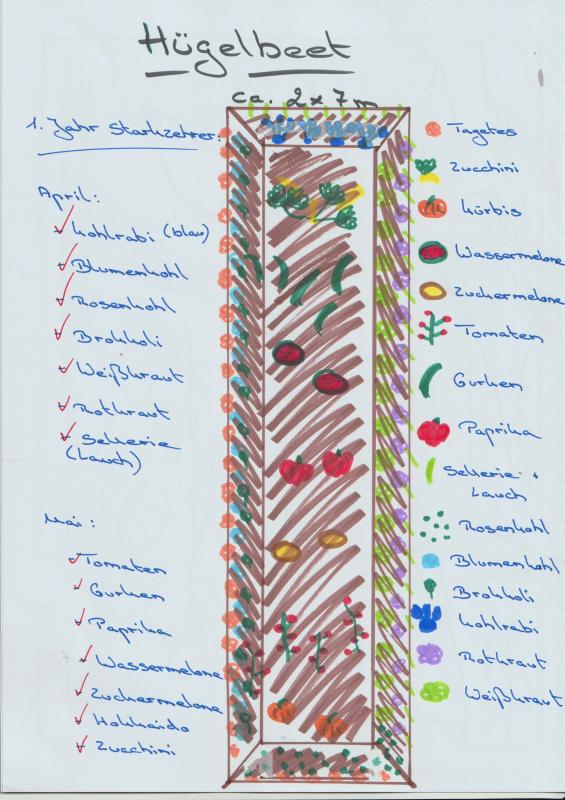 Hügelbeet
ca. 2 x 7 m
1. Jahr Starkzehrer:
April:
Kohlrabi (blau)
Blumenkohl
Rosenkohl
Brokkoli
Weißkraut
Rotkraut
Sellerie
(Lauch)
Mai:
Tomaten
Gurken
Paprika
Wassermelone
Zuckermelone
Hokkaido
Zucchini
Tagetes
Zucchini
Kürbis
Wassermelone
Zuckermelone
Tomaten
Gurken
Paprika
Sellerie +
Lauch
Rosenkohl
Blumenkohl
Brokkoli
Kohlrabi
Rotkraut
Weißkraut